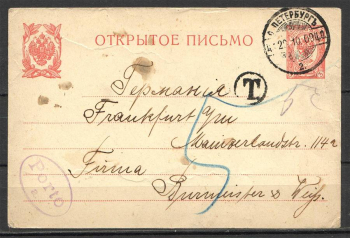 ОТКРЫТОЕ ПИСЬМО
С.ПЕТЕРБУРГЪ
T
Германія
Frankfurt a/m
Mainzerlandstr. 114a
Firma
Burmeister & 
Porto